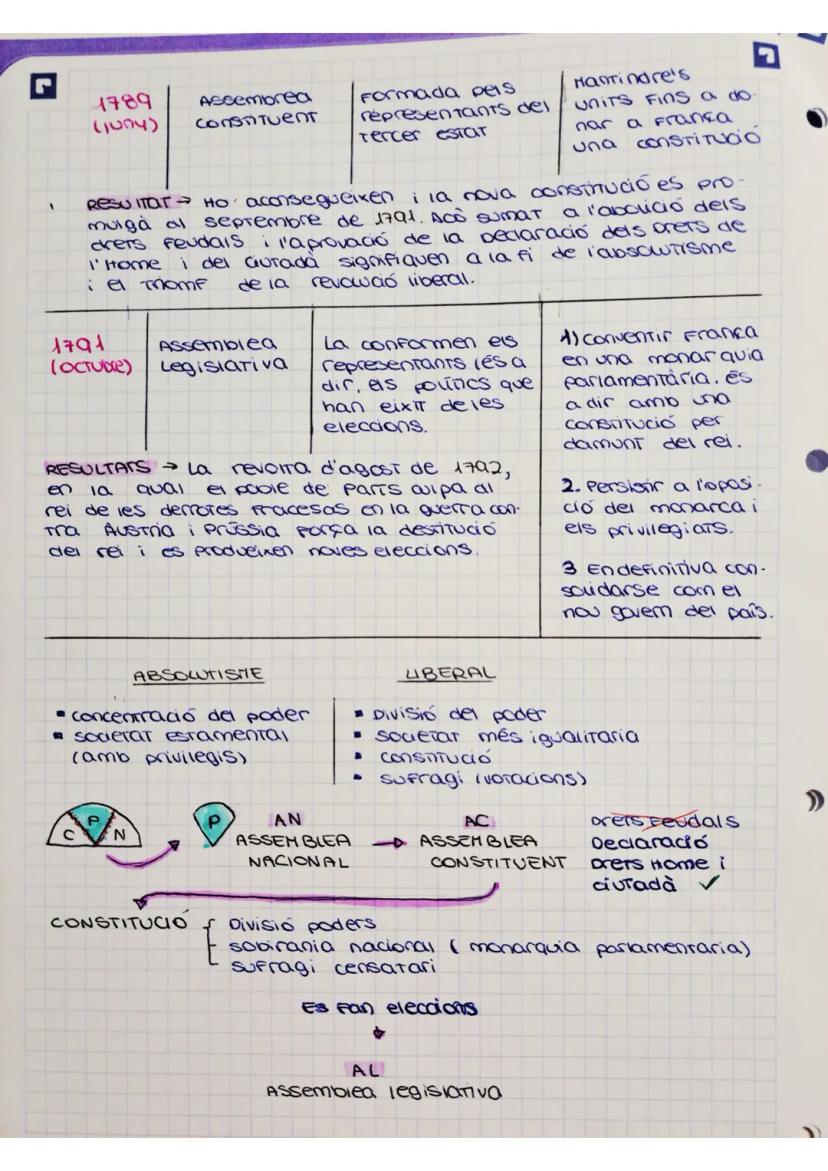 1789
(JUNY)
Assemblea
constituent
Formada pels
representants del
tercer estat
Mantindre's
units fins a do-
nar a França
una constitució
RESULTAT → Ho aconsegueixen i la nova constitució es pro-
mulgà al septembre de 1791. Açò sumat a l'abolició dels
drets feudals i l'aprovació de la Declaració dels Drets de
l'Home i del Ciutadà signfiquen a la fi de l'absolutisme
i el triomf de la revolució liberal.
1791
(OCTUBRE)
Assemblea
Legislativa
La conformen els
representants (és a
dir, els polítics que
han eixit de les
eleccions.
1) Conventir França
en una monarquia
parlamentària, és
a dir amb una
constitució per
damunt del rei.
2. Persistir a l'oposi-
ció del monarca i
els privilegiats.
3 En definitiva con-
solidarse com el
nou govern del país.
RESULTATS → La revolta d'agost de 1792,
en la qual el poble de París culpa al
rei de les derrotes fracesas en la guerra con-
tra Àustria i Prússia força la destitució
del rei i es produeixen noves eleccions.
ABSOLUTISME
▪ concentració del poder
▪ societat estamental
(amb privilegis)
LIBERAL
▪ Divisió del poder
▪ societat més igualitaria
▪ constitució
▪ sufragi (votacions)
C P N
P
AN
ASSEMBLEA
NACIONAL
→
AC
ASSEMBLEA
CONSTITUENT
Drets Feudals
Declaració
Drets Home i
ciutadà ✓
CONSTITUCIÓ { Divisió poders
sobirania nacional (monarquia parlamentaria)
sufragi censatari
Es fan eleccions
AL
Assemblea legislativa